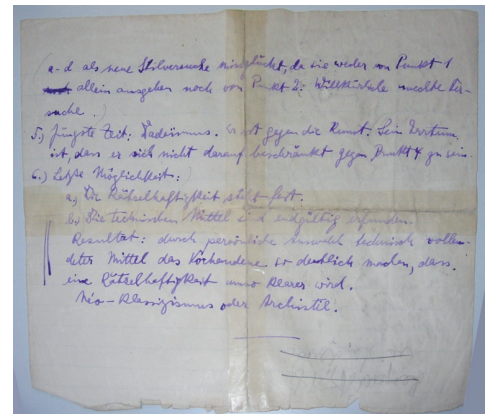 (a-d als neue Stilversuche missglückt, da sie weder von Punkt 1
allein ausgehen noch von Punkt 2: Willkürliche unechte Ver-
suche.)
5.) Jüngste Zeit: Dadaismus. Er ist gegen die Kunst. Sein Irrtum
ist, dass er sich nicht darauf beschränkt gegen Punkt 4 zu sein.
6.) Letzte Möglichkeit:
a) Die Rätselhaftigkeit steht fest.
b) Die technischen Mittel sind endgültig erfunden.
Resultat: durch persönliche Auswahl technisch vollen-
deter Mittel das so deutlich machen, dass
eine Rätselhaftigkeit umso klarer wird.
Néo-Klassizismus oder Archistil.